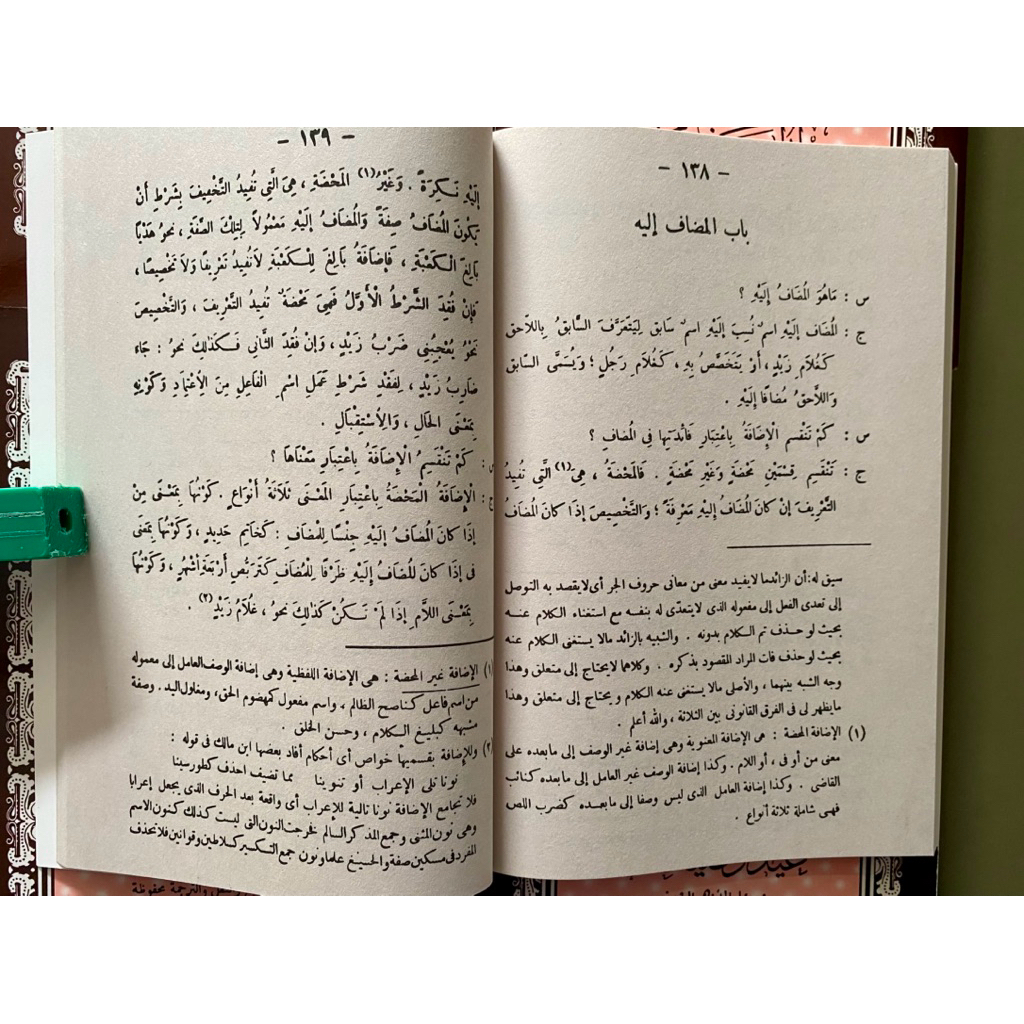 — ١٣٨ —
باب المضاف إليه
س : مَاهُوَ المُضَافُ إِلَيْهِ ؟
ج : المُضَاف إِلَيْهِ اسمٌ نُسِبَ إِلَيْهِ اسمٌ سَابق لِيَتَعَرَّفَ السَّابقُ بِاللاَّحق
كَغُلاَمِ زَيْدٍ، أَوْ يَتَخَصَّصُ بِهِ ، كَغُلَامِ رَجُلٍ ؛ وَيُسَمَّى السَّابق
وَاللاَّحقُ مُضَافا إِلَيْهِ .
س : كَمْ تَنْقَسِم الإِضَافَةُ بِاعْتِبَارِ فَائدَتِها فِي المُضَافِ ؟
ج : تَنْقَسِم قِسْمَيْنِ مَحْضَةٍ وَغَيْرِ مَحْضَةٍ . فَالمَحْضَةُ ، هِيَ (١) الَّتِي تُفِيدُ
التَّعْرِيفَ إنْ كانَ المُضَافُ إِلَيْهِ مَعْرِفَةً ؛ وَالتَّخْصِيصَ إِذَا كانَ المُضَافُ
سبق له: أن الزائد ما لا يفيد معنى من معانى حروف الجر أى لايقصد به التوصل
إلى تعدى الفعل إلى مفعوله الذى لايتعدّى له بنفسه مع استغناء الكلام عنه
بحيث لو حذف تم الكلام بدونه . والشبيه بالزائد مالا يستغنى الكلام عنه
بحيث لو حذف فات المراد المقصود بذكره . وكلاهما لايحتاج إلى متعلق وهذا
وجه الشبه بينهما ، والأصلى مالا يستغنى عنه الكلام ويحتاج إلى متعلق وهذا
مايظهر لى فى الفرق القانونى بين الثلاثة ، والله أعلم .
(١) الإضافة المحضة : هى الإضافة المعنوية وهى إضافة غير الوصف إلى مابعده على
معنى من أو فى ، أو اللام . وكذا إضافة الوصف غير العامل إلى مابعده كنائب
القاضى . وكذا إضافة العامل الذى ليس وصفا إلى مابعده كضرب اللص
فهى شاملة ثلاثة أنواع .
— ١٣٩ —
إِلَيْهِ نَكِرَةً . وَغَيْرُ (١) المَحْضَةِ ، هِيَ الَّتِي تُفِيدُ التَّخْفِيفَ بِشَرْطِ أَنْ
يَكُونَ المُضَافُ صِفَةً وَالمُضَافُ إِلَيْهِ مَعْمُولاً لِتِلْكَ الصِّفَةِ ، نحوُ هَدْيًا
بَالِغَ الْكَعْبَةِ ، فَإِضَافَةُ بَالِغَ لِلْكَعْبَةِ لاَتُفِيدُ تَعْرِيفًا وَلاَ تَخْصِيصًا ،
فَإِنْ فُقِدَ الشَّرْطُ الْأَوَّلُ فَهِيَ مَحْضَةٌ تُفِيدُ التَّعْرِيفَ ، وَالتَّخْصِيصَ
نَحْوُ يُعْجِبُنِي ضَرْبُ زَيْدٍ ، وَإِنْ فُقِدَ الثَّانِي فَكَذلِكَ نحوُ : جَاءَ
ضَارِبُ زَيْدٍ ، لِفَقْدِ شَرْطِ عَمَلِ اسْمِ الْفَاعِلِ مِنَ الاِعْتِمَادِ وَكَوْنِهِ
بِمَعْنَى الحَالِ ، وَالاِسْتِقْبَالِ .
س : كَمْ تَنْقَسِمُ الْإِضَافَةُ بِاعْتِبَارِ مَعْنَاهَا ؟
ج : الْإِضَافَةُ المَحْضَةُ بِاعْتِبَارِ المَعْنَى ثَلَاثَةُ أَنْوَاعٍ . كَوْنُهَا بِمَعْنَى مِنْ
إِذَا كانَ المُضَافُ إِلَيْهِ جِنْسًا لِلْمُضَافِ : كَخَاتِمِ حَدِيدٍ ، وَكَوْنُهَا بِمَعْنَى
فِى إِذَا كانَ المُضَافُ إِلَيْهِ ظَرْفًا لِلْمُضَافِ كَتَرَبُّصِ أَرْبَعَةِ أَشْهُرٍ ، وَكَوْنُهَا
بِمَعْنَى اللاَّمِ إِذَا لَمْ تَكُنْ كَذلِكَ نحوُ ، غُلَامُ زَيْدٍ (٢) .
(١) الإضافة غير المحضة : هى الإضافة اللفظية وهى إضافة الوصف العامل إلى معموله
من اسم فاعل كناصح الظالم ، واسم مفعول كمهضوم الحق، ومغلول اليد . وصفة
مشبهه كبليغ الكلام ، وحسن الخلق .
(٢) وللإضافة بقسميها خواص أى أحكام أفاد بعضها ابن مالك فى قوله :
نونا تلى الإعراب أو تنوينا مما تضيف احذف كطورسينا
فلا تجامع الإضافة نونا تالية للإعراب أى واقعة بعد الحرف الذى يجعل إعرابا
وهى نون المثنى وجمع المذكر السالم فخرجت النون التى ليست كذلك كنون الاسم
المفرد فى مسكين صفة و علما ونون جمع التكسير كسلاطين وقوانين فلا تحذف